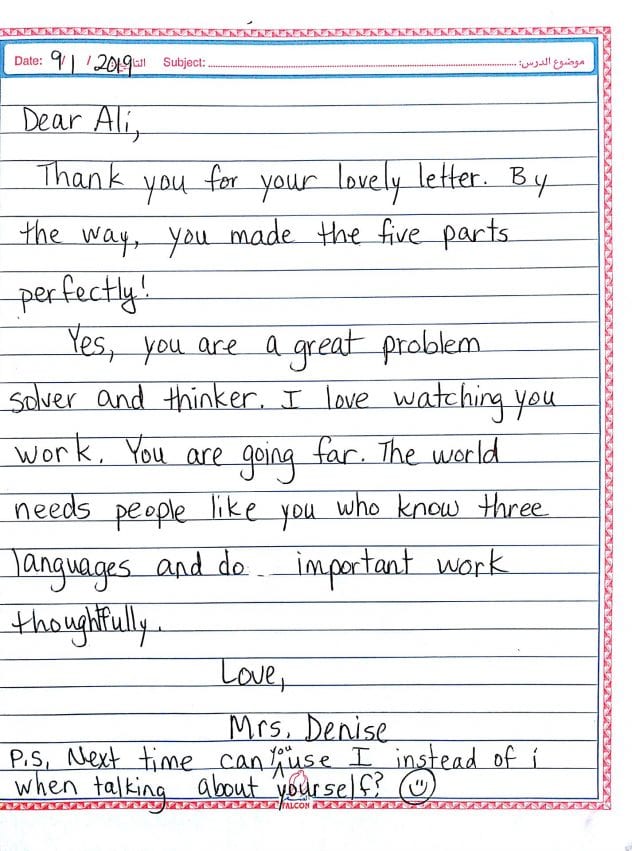 Date: 9/1/2019 التاريخ Subject: موضوع الدرس:
Dear Ali,
Thank you for your lovely letter. By
the way, you made the five parts
perfectly!
Yes, you are a great problem
solver and thinker. I love watching you
work. You are going far. The world
needs people like you who know three
languages and do important work
thoughtfully.
Love,
Mrs. Denise
P.S. Next time can you use I instead of i
when talking about yourself? ☺
FALCON